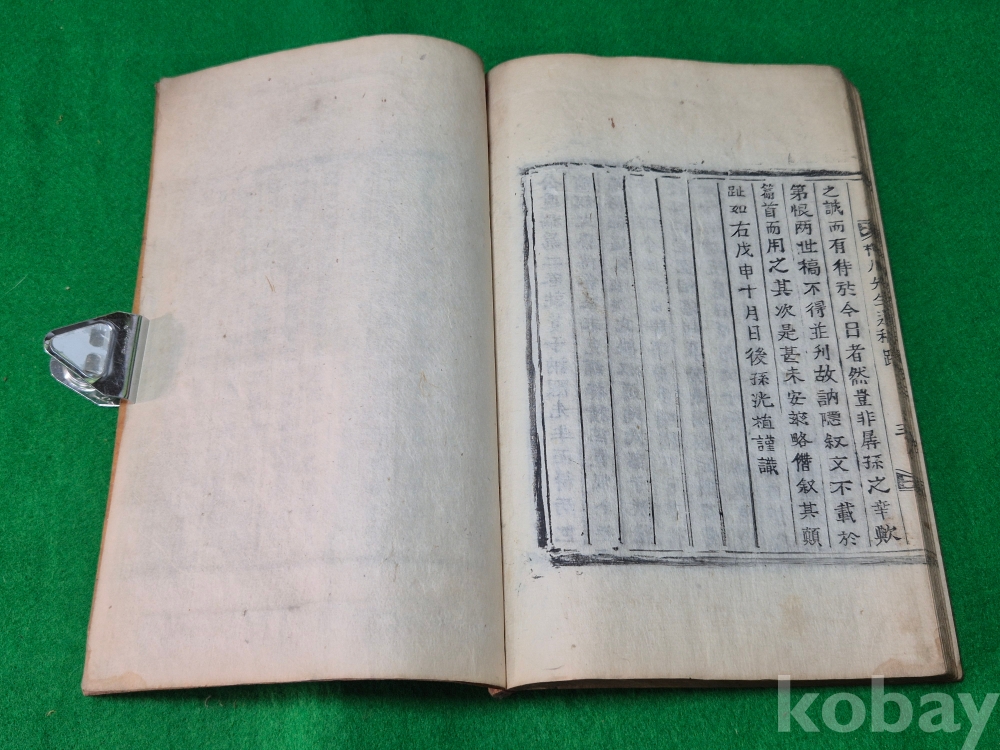 之誠而有待於今日者然豈非孱孫之幸歟
第恨两世稿不得並刊故訥隱叙文不載於
篇首而用之其次是甚未安玆略僭叙其顛
趾如右戊申十月日後孫洸植謹識
先生
跋
三
kobay